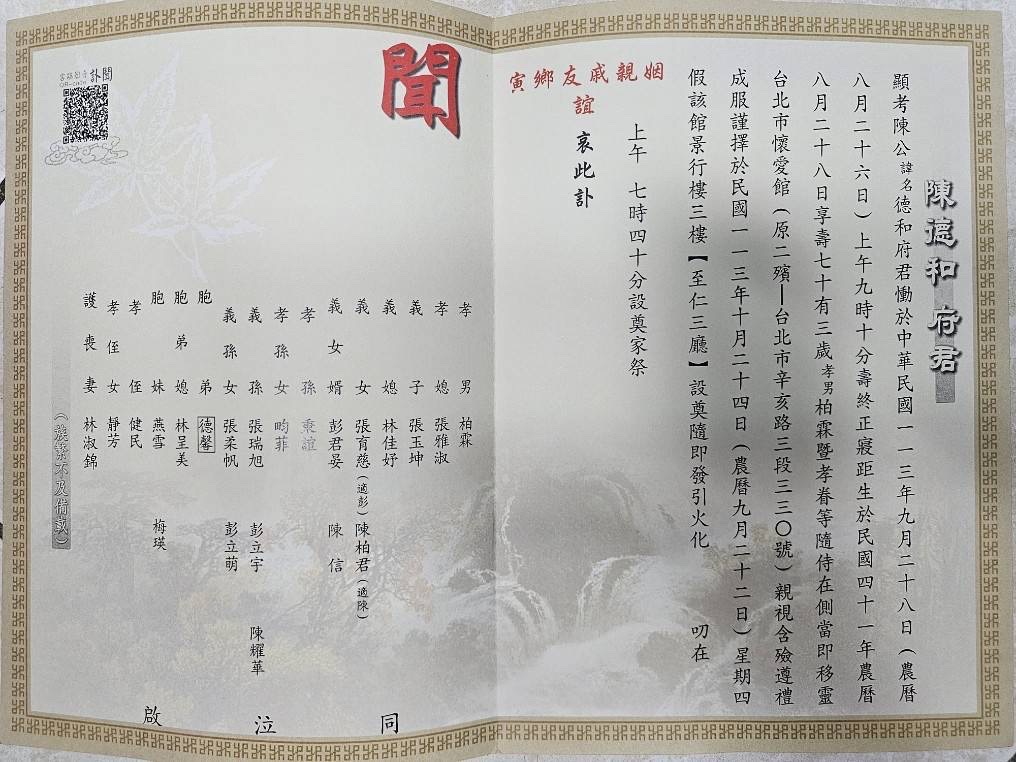 陳德和府君
顯考陳公諱名德和府君慟於中華民國一一三年九月二十八日(農曆
八月二十六日)上午九時十分壽終正寢距生於民國四十一年農曆
八月二十八日享壽七十有三歲孝男柏霖暨孝眷等隨侍在側當即移靈
台北市懷愛館(原二殯—台北市辛亥路三段三三〇號)親視含殮遵禮
成服謹擇於民國一一三年十月二十四日(農曆九月二十二日)星期四
假該館景行樓三樓【至仁三廳】設奠隨即發引火化 叨在
姻親戚友鄉寅
上午 七時四十分設奠家祭
誼 哀此訃
聞
孝男 柏霖
孝媳 張雅淑
義子 張玉坤
義媳 林佳妤
義女 張育慈(適彭) 陳柏君(適陳)
義女婿 彭君晏 陳信
孝孫 秉誼
孝孫女 昀菲
義孫 張瑞旭 彭立宇 陳耀華
義孫女 張柔帆 彭立萌
胞弟 德馨
胞弟媳 林呈美
胞妹 燕雪 梅瑛
孝侄 健民
孝侄女 靜芳
護喪妻 林淑錦
(族繁不及備載)
同泣啟
訃聞